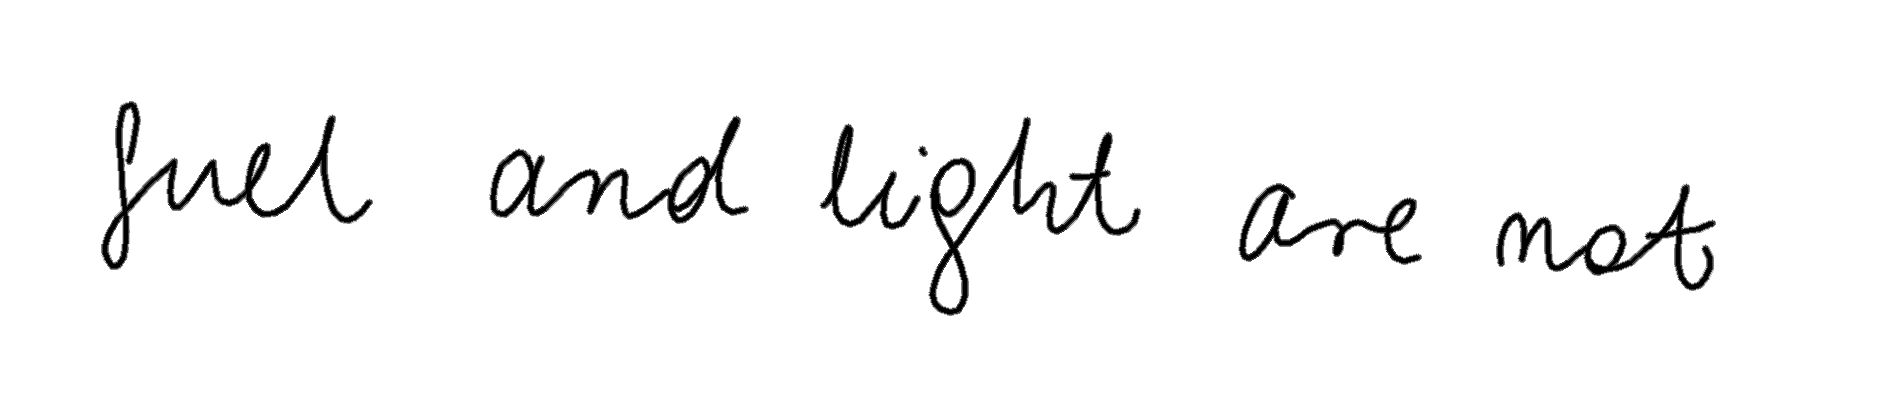 fuel and light are not